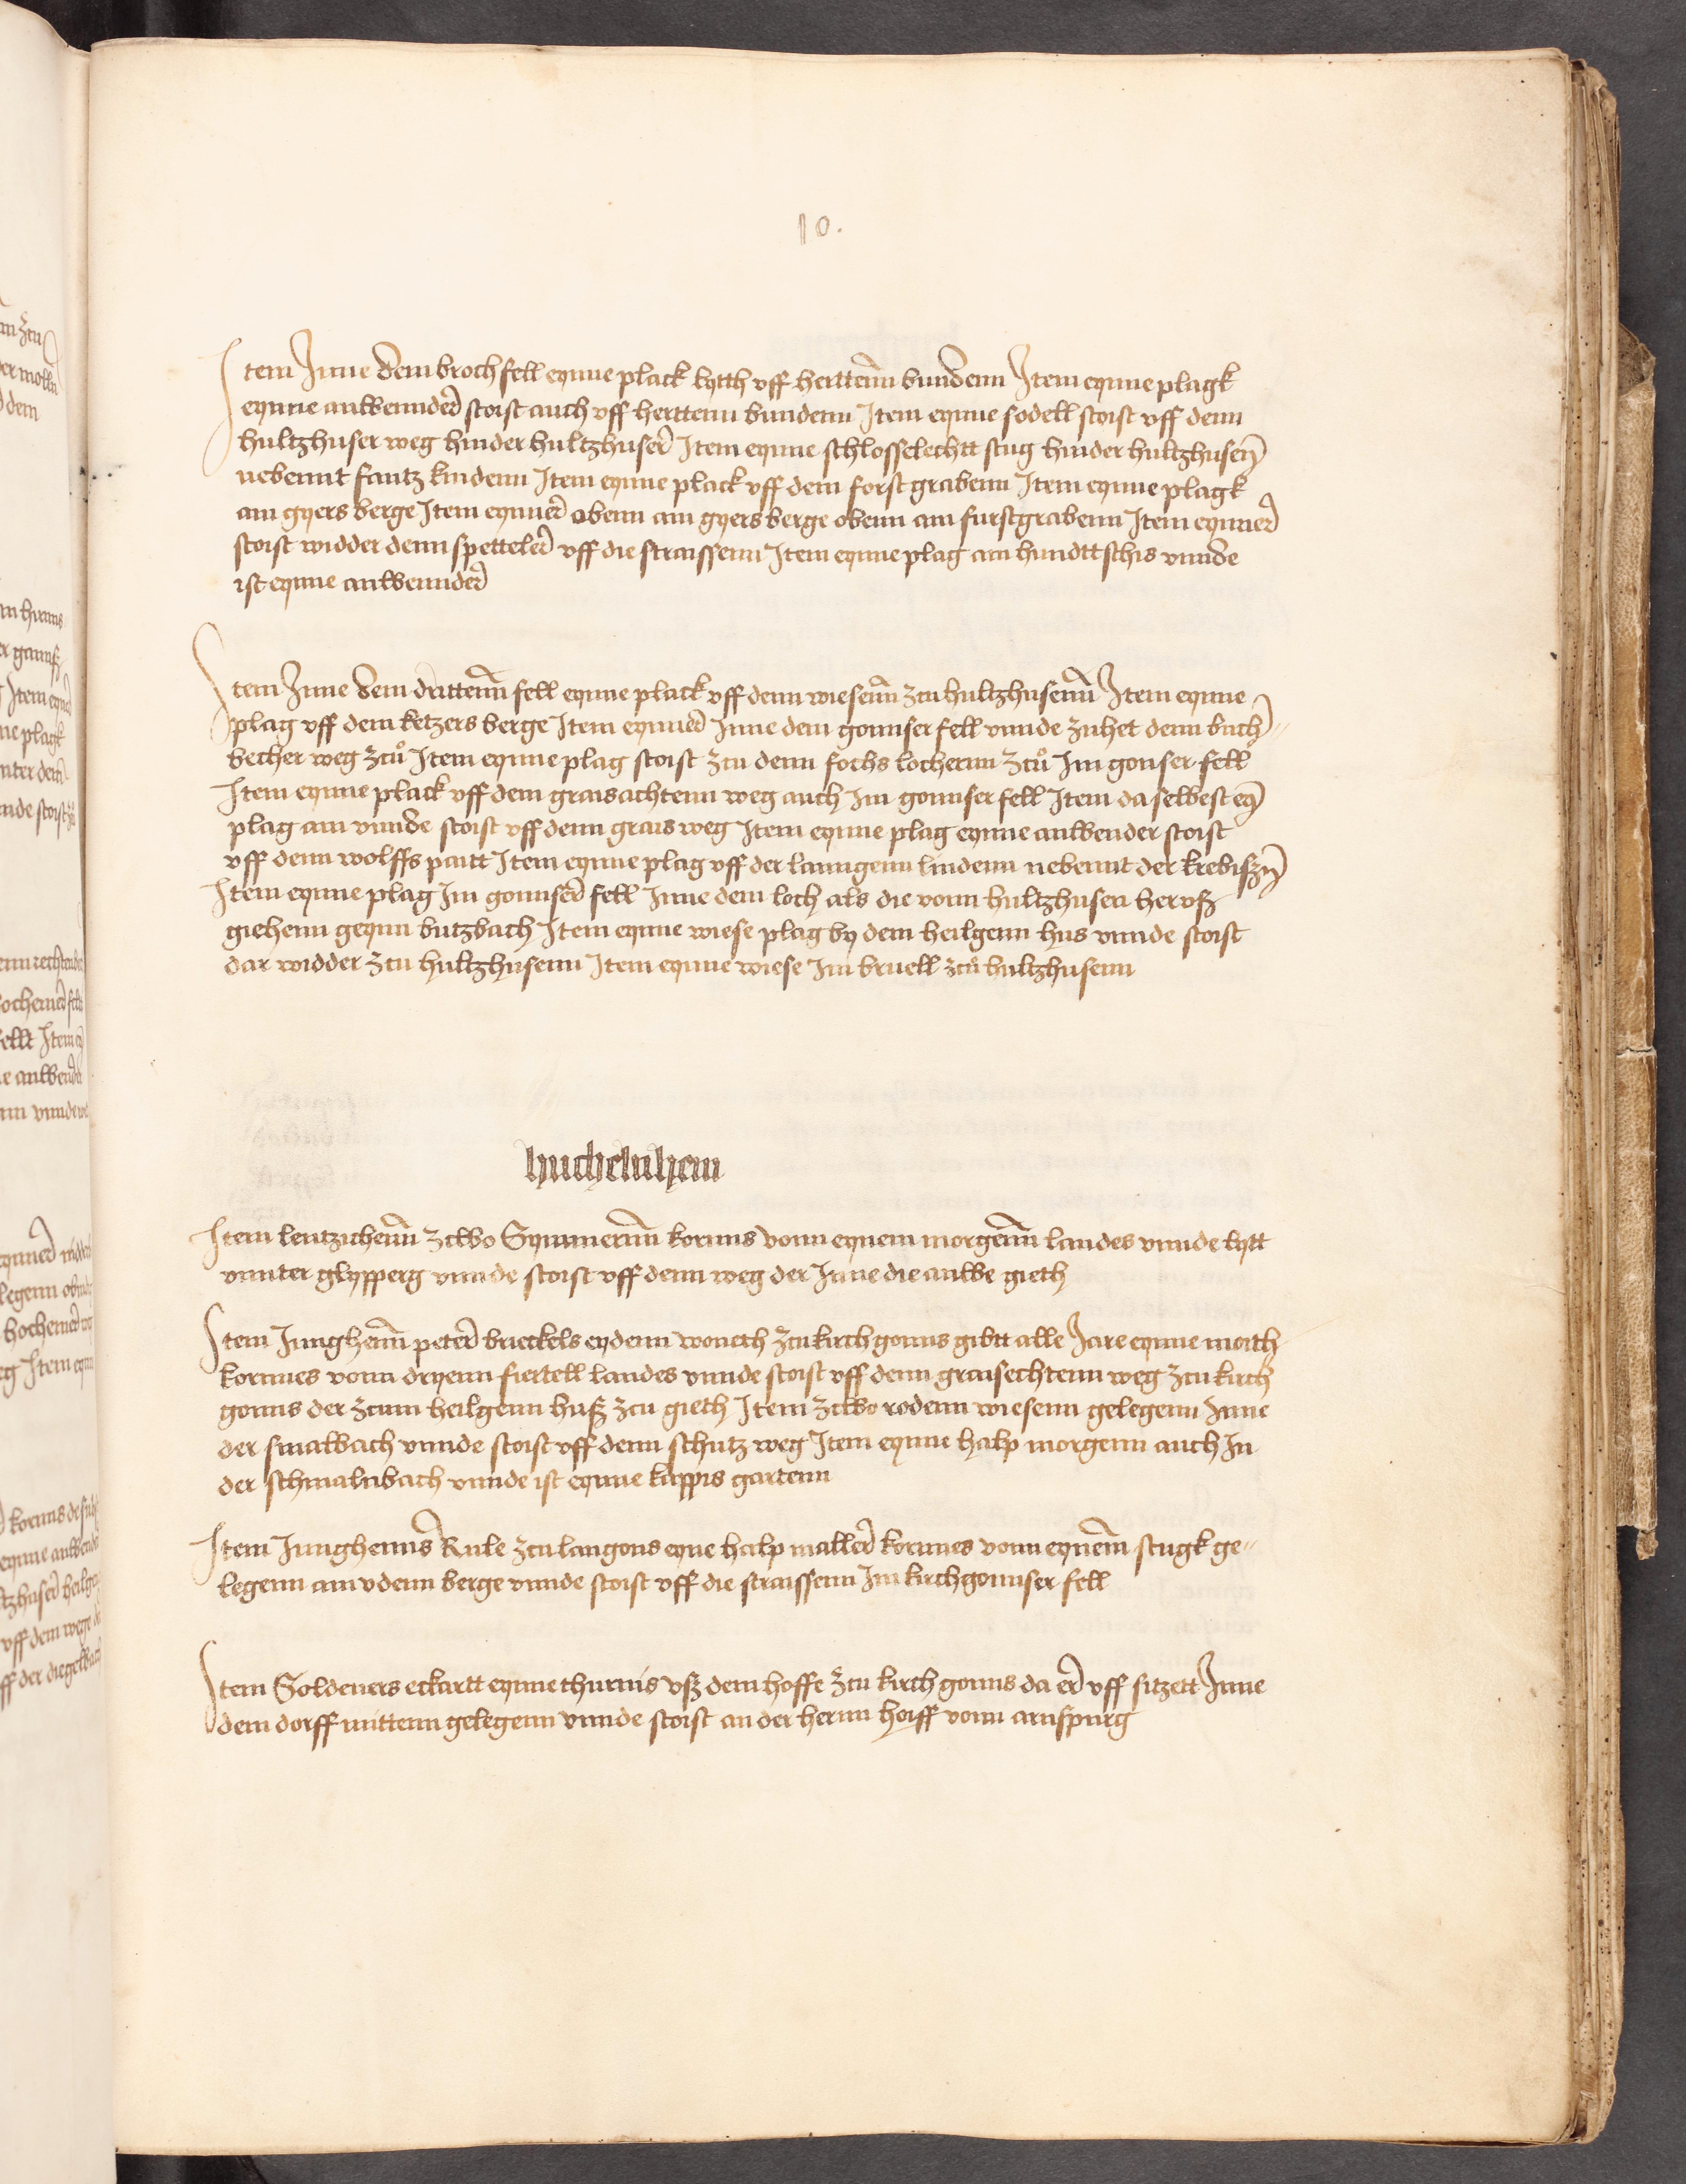 10.
Item Inne dem broch fell eynne plack lytth vff herttenn bundenn Item eynne plagk
eynne anwennder stoist auch vff herttenn bundenn Item eynne sodell stoist vff denn
hultzhuser weg hinder hultzhuser Item eynne schlosselechtt stug hinder hultzhusen
nebennt fautz kindenn Item eynne plack vff dem forst grabenn Item eynne plagk
am gyers berge Item eynner obenn am gyers berge obenn am furstgrabenn Item eynner
stoist widder denn spetteler vff die straissenn Item eynne plag am hundttschis vnnde
ist eynne anwennder
Item Inne dem drittenn fell eynne plack vff denn wiesenn zcu hultzhusenn Item eynne
plag vff dem ketzers berge Item eynner Inne dem gonnser fell vnnde zuhet denn buch
becher weg zců Item eynne plag stoist zcu denn fochs lochernn zců Im gonser fell
Item eynne plack vff dem graisachtenn weg auch Im gonnser fell Item da selbest ey
plag am vnnde stoist vff denn grais weg Item eynne plag eynne anwender stoist
vff denn wolffs patt Item eynne plag vff der lanngenn lindenn nebennt der krebiszyn
Item eynne plag Im gonnser fell Inne dem loch als die vonn hultzhusen her vß
giehenn geynn butzbach Item eynne wiese plag by dem heilgenn hus vnnde stoist
dar widder zcu hultzhusenn Item eynne wiese Im bruell zců hultzhusenn
huchelnhem
Item lentzichenn zcwo Symmernn kornns vonn eynem morgenn landes vnnde lytt
vnnter glypperg vnnde stoist vff denn weg der Inne die auwe gieth
Item Junghenn peter brueckels eydenn woneth zcu kirch gonns gibtt alle Jare eynne moith
kornnes vonn dryenn fiertell landes vnnde stoist vff denn graisechtenn weg zcu kirch
gonns der zcum heilgenn huß zcu gieth Item zcwo rodenn wiesenn gelegenn Inne
der smalbach vnnde stoist vff denn schutz weg Item eynne halp morgenn auch In
der schmalnbach vnnde ist eynne kappis gartenn
Item Junghenns Rule zcu langons eyne halp maller kornnes vonn eynem stugk ge
legenn am vdenn berge vnnde stoist vff die straissenn Im kirchgonnser fell
Item Soldeners eckartt eynne thurnis vß dem hoffe zcu kirch gonns da er vff sitzett Inne
dem dorff mittenn gelegenn vnnde stoist an der hernn hoiff vonn arnspurg